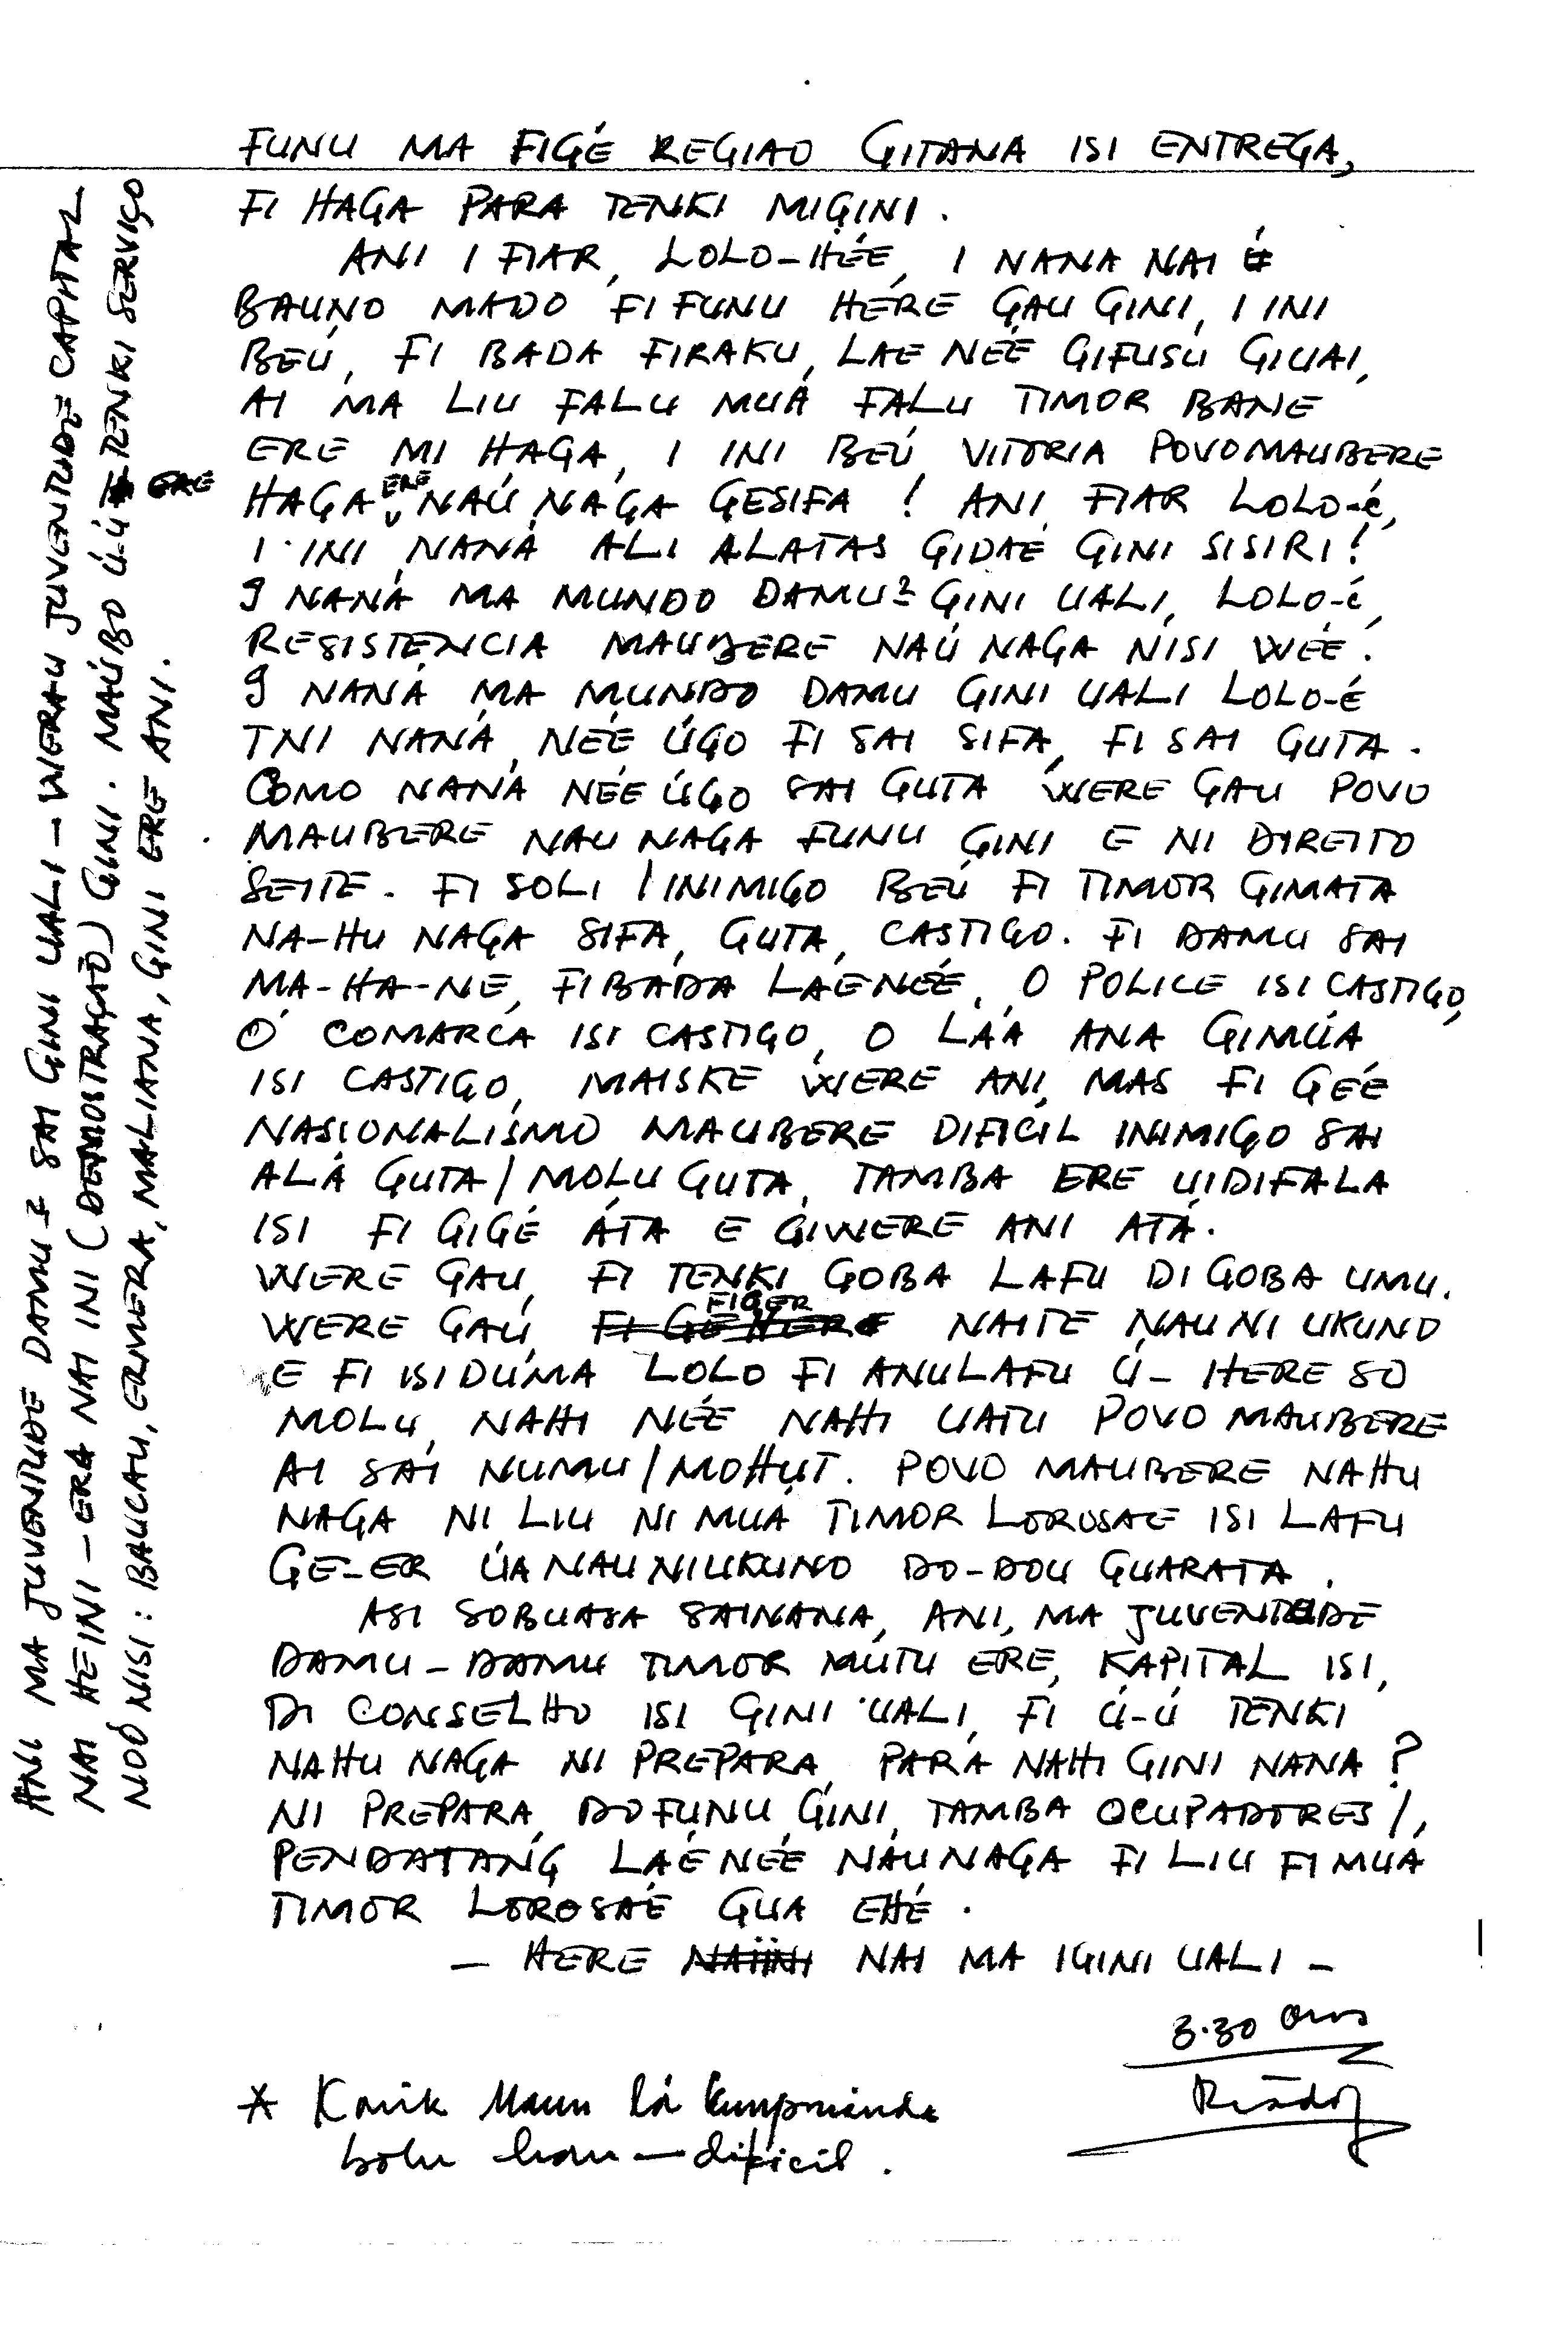 FUNU MA FIGÉ REGIAO GITANA ISI ENTREGA,
FI HAGA PARA TENKI MIGINI.
ANI I FIAR, LOLO-HÉE, I NANA NAI É
BAUNO MADO FI FUNU HERE GAU GINI, I INI
BEÚ, FI BADA FIRAKU, LAE NÉE GIFUSU GIUAI,
AI MA LIU FALU MUÁ FALU TIMOR BANE
ERE MI HAGA, I INI BEÚ VITORIA POVO MAUBERE
HAGA ERE NAÚ NAGA GESIFA! ANI, FIAR LOLO-É,
I INI NANÁ ALI ALATAS GIDAÉ GINI SISIRI!
I NANÁ MA MUNDO DAMU2 GINI UALI, LOLO-É,
RESISTENCIA MAUBERE NAÚ NAGA NISI WÉE.
I NANÁ MA MUNDO DAMU GINI UALI LOLO-É
INI NANÁ, NÉE ÚGO FI SAI SIFA, FI SAI GUTA.
COMO NANÁ NÉE ÚGO SAI GUTA WERE GAU POVO
MAUBERE NAU NAGA FUNU GINI E NI DIREITO
SEITE. FI SOLI / INIMIGO BEÚ FI TIMOR GIMATA
NA-HU NAGA SIFA, GUTA, CASTIGO. FI DAMU SAI
MA-HA-NE, FI BADA LAÉNÉE, O POLICE ISI CASTIGO,
O COMARCA ISI CASTIGO, O LÁA ANA GIMÚA
ISI CASTIGO, MAISKE WERE ANI, MAS FI GÉE
NASIONALISMO MAUBERE DIFICIL INIMIGO SAI
ALÁ GUTA/MOLU GUTA, TAMBA ERE UIDIFALA
ISI FI GIGÉ ÁTA E GIWERE ANI ATÁ.
WERE GAU, FI TENKI GOBA LAFU DI GOBA UMU.
WERE GAÚ, FIGER NAITE NAU NI UKUND
E FI ISI DÚMA LOLO FI ANULAFU Ú- HERE SO
MOLU, NAHI NÉE NAHI UATU POVO MAUBERE
AI SAI NUMU/MOHUT. POVO MAUBERE NAHU
NAGA NI LIU NI MUÁ TIMOR LOROSAE ISI LAFU
GE-ER ÚA NAU NI UKUND DO-DOU GUARATA.
ASI SOBUASA SAINANA, ANI, MA JUVENTUDE
DAMU-DAMU TIMOR MUTU ERE, KAPITAL ISI,
DI CONSSELHO ISI GINI UALI, FI Ú-Ú TENKI
NAHU NAGA NI PREPARA, PARA NAHI GINI NANA?
NI PREPARA, DO FUNU GINI, TAMBA OCUPADORES/,
PENDATANG LAÉ NÉE NAU NAGA FI LIU FI MUA
TIMOR LOROSAÉ GUA EHÉ.
— HERE NAI MA IGINI UALI —
3.30
* Karik Maun lá kumpriende
bolu hau — difícil.
ANI MA JUVENTUDE DAMU2 SAI GINI UALI – WERAU JUVENTUDE CAPITAL
NAI HEINI – ERA NAI INI (DEMOSTRAÇÃO) GINI. MAÚBO Ú-Ú ERE TENKI SERVIÇO
NOÓ NISI: BAUCAU, ERMERA, MALIANA, GINI ERE ANI.